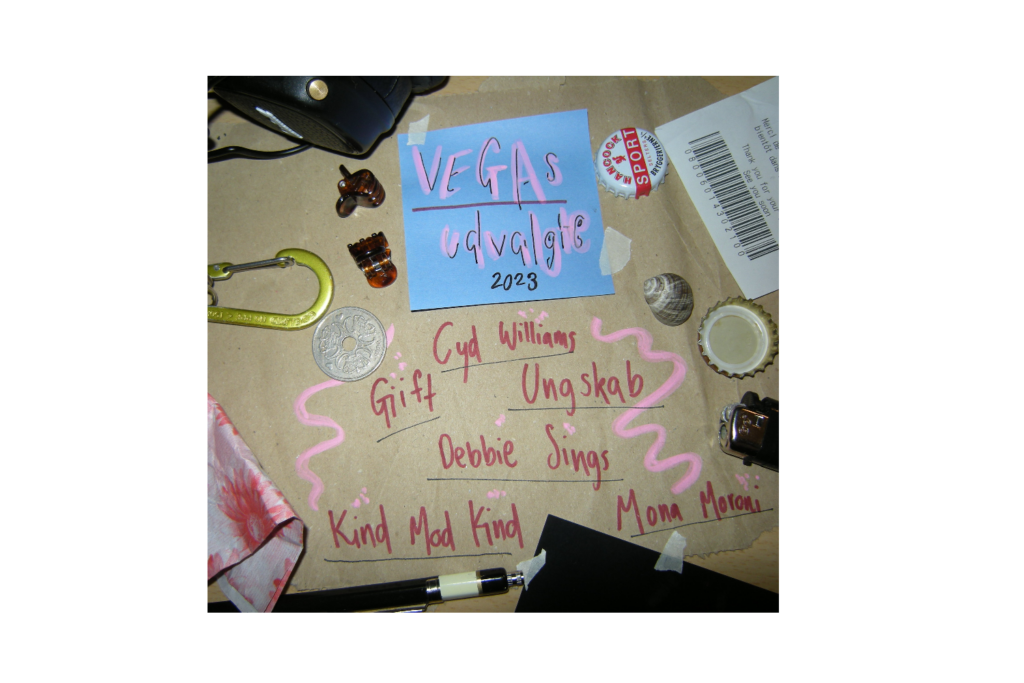 VEGAS
udvalgte
2023
HANCOCK
SPORT
Merci de
bientôt dans
Thank you for your
See you soon
Cyd Williams
Giift
Ungskab
Debbie Sings
Kind Mod Kind
Mona Moroni